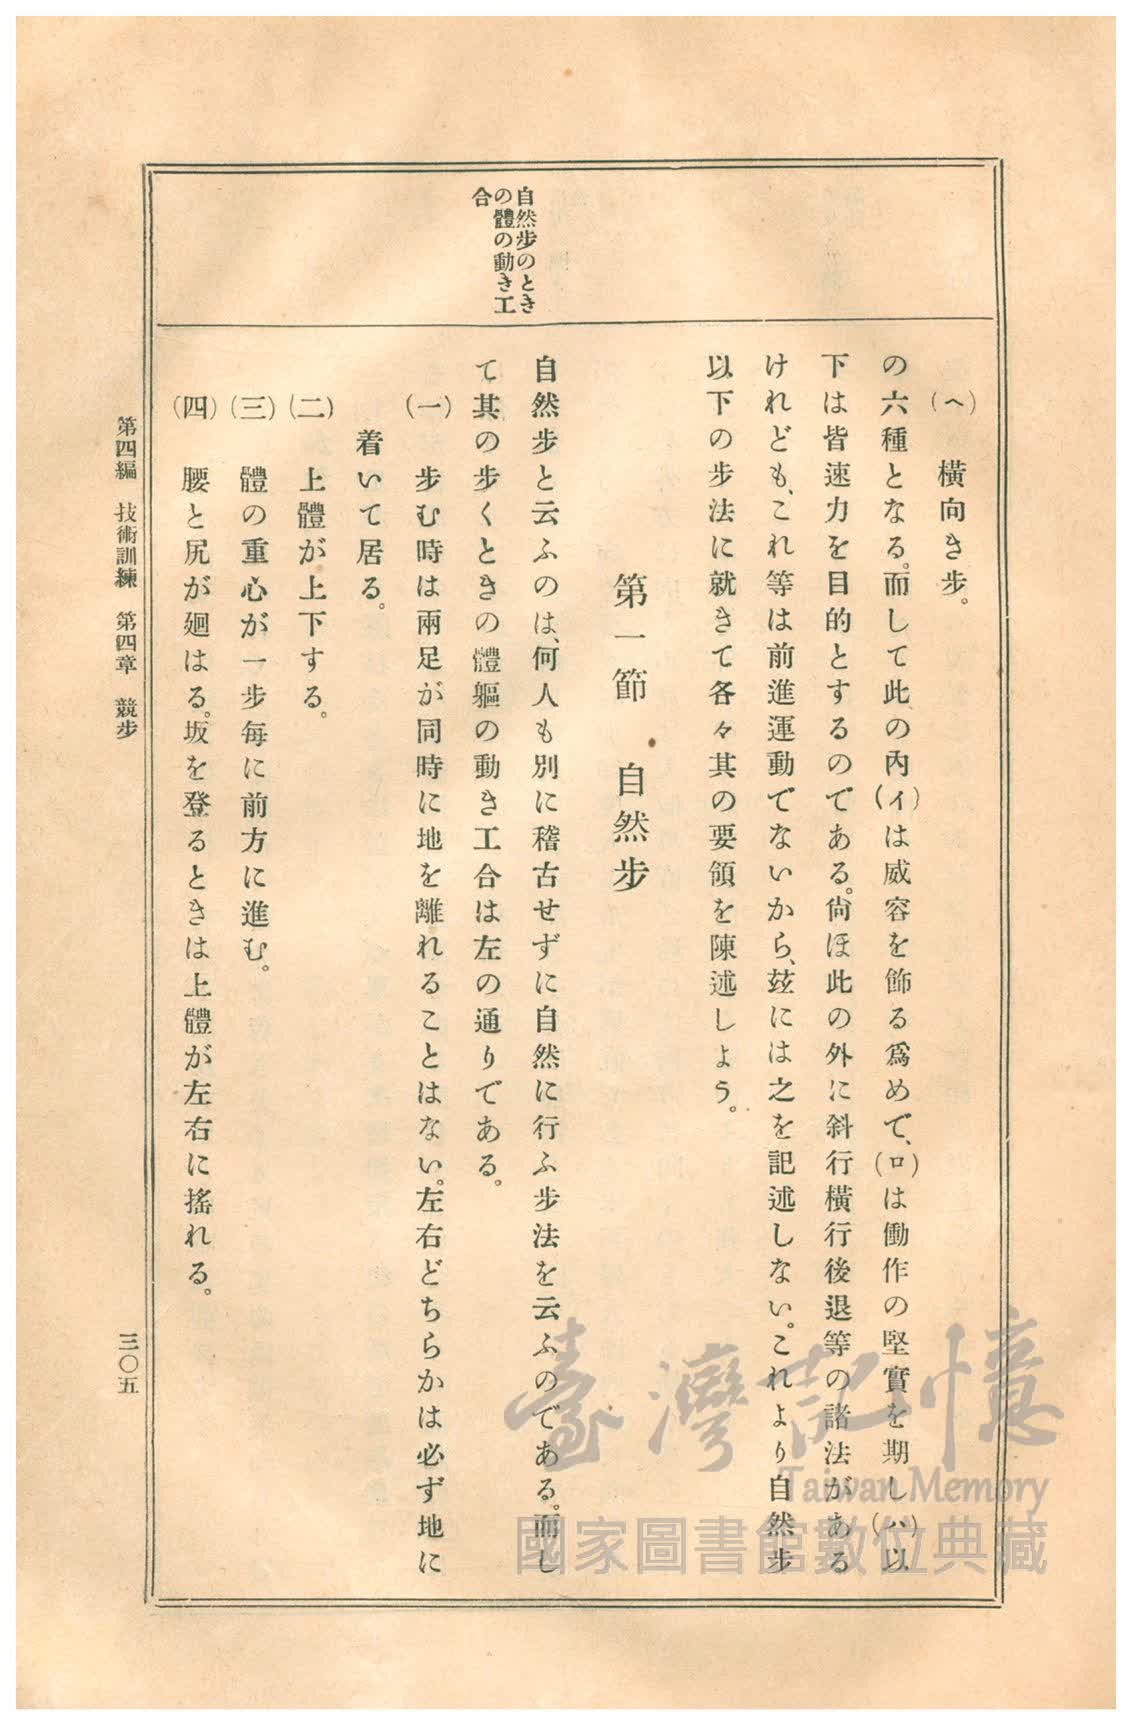 自然步のとき
の體の動き工
合
(ヘ)　橫向き步。
の六種となる。而して此の內(イ)は威容を飾る爲めで、(ロ)は働作の堅實を期し(ハ)以
下は皆速力を目的とするのである。尙ほ此の外に斜行橫行後退等の諸法がある
けれども、これ等は前進運動でないから、玆には之を記述しない。これより自然步
以下の步法に就きて各々其の要領を陳述しよう。
第一節　自然步
自然步と云ふのは、何人も別に稽古せずに自然に行ふ步法を云ふのである。而し
て其の步くときの體軀の動き工合は左の通りである。
(一)　步む時は兩足が同時に地を離れることはない。左右どちらかは必ず地に
着いて居る。
(二)　上體が上下する。
(三)　體の重心が一步每に前方に進む。
(四)　腰と尻が廻はる。坂を登るときは上體が左右に搖れる。
第四編　技術訓練　第四章　競步
三〇五
臺灣記憶
Taiwan Memory
國家圖書館數位典藏